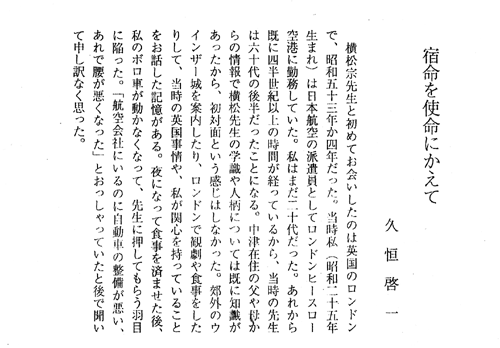 宿命を使命にかえて
久恒啓一
横松宗先生と初めてお会いしたのは英国のロンドン
で、昭和五十三年か四年だった。当時私（昭和二十五年
生まれ）は日本航空の派遣員としてロンドンヒースロー
空港に勤務していた。私はまだ二十代だった。あれから
既に四半世紀以上の時間が経っているから、当時の先生
は六十代の後半だったことになる。中津在住の父や母か
らの情報で横松先生の学識や人柄については既に知識が
あったから、初対面という感じはしなかった。郊外のウ
インザー城を案内したり、ロンドンで観劇や食事をした
りして、当時の英国事情や、私が関心を持っていること
をお話した記憶がある。夜になって食事を済ませた後、
私のボロ車が動かなくなって、先生に押してもらう羽目
に陥った。「航空会社にいるのに自動車の整備が悪い、
あれで腰が悪くなった」とおっしゃっていたと後で聞い
て申し訳なく思った。